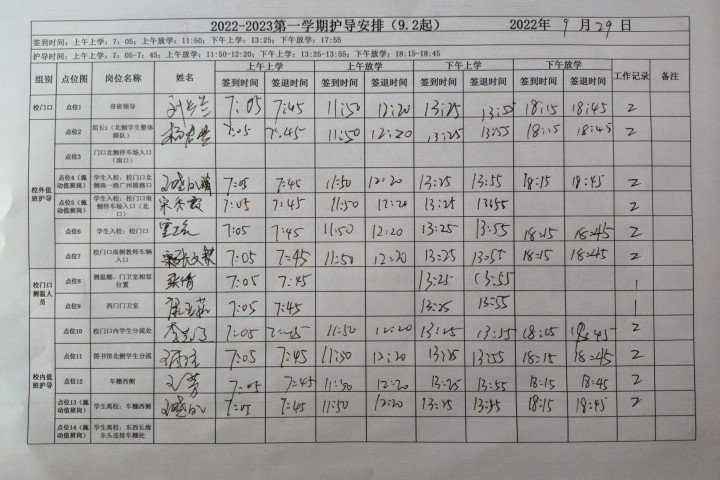 2022-2023第一学期护导安排（9.2起） 2022年 9 月 29 日
签到时间：上午上学：7：05；上午放学：11:50；下午上学：13:25；下午放学：17:55
护导时间：上午上学：7：05-7：45；上午放学：11:50-12:20；下午上学：13:25-13:55；下午放学：18:15-18:45
组别 点位图 岗位名称 姓名 上午上学 上午放学 下午上学 下午放学 工作记录 备注
签到时间 签退时间 签到时间 签退时间 签到时间 签退时间 签到时间 签退时间
校门口 点位1 带班领导 7:05 7:45 11:50 12:20 13:25 13:55 18:15 18:45 2
校外值班护导
点位2 组长1（北侧学生整体路队） 7:05 7:45 11:50 12:20 13:25 13:55 18:15 18:45 2
点位3 门口北侧停车场入口（南口）
点位4（流动值班岗） 学生入校：校门口北侧南一路广州路路口 7:05 7:45 11:50 12:20 13:25 13:55 18:15 18:45 2
点位5（流动值班岗） 学生入校：校门口南侧停车场入口（北口） 7:05 7:45 11:50 12:20 13:25 13:55 2
点位6 学生入校：校门口 7:05 7:45 11:50 12:20 13:25 13:55 18:15 18:45 2
点位7 校门口南侧教师车辆入口 7:05 7:45 11:50 12:20 13:25 13:55 18:15 18:45 2
校门口测温人员
点位8 测温棚、门卫室相邻位置 7:05 7:45 13:25 13:55 1
点位9 西门门卫室 7:05 7:45 13:25 13:55 1
校内值班护导
点位10 校门口内学生分流处 7:05 7:45 11:50 12:20 13:25 13:55 18:15 18:45 2
点位11 图书馆北侧学生分流 7:05 7:45 11:50 12:20 13:25 13:55 18:15 18:45 2
点位12 车棚西侧 7:05 7:45 11:50 12:20 13:25 13:55 18:15 18:45 2
点位13（流动值班岗） 学生离校：车棚西侧 7:05 7:45 11:50 12:20 13:25 13:45 18:15 18:45 2
点位14（流动值班岗） 学生离校：东西长廊车头连接车棚处